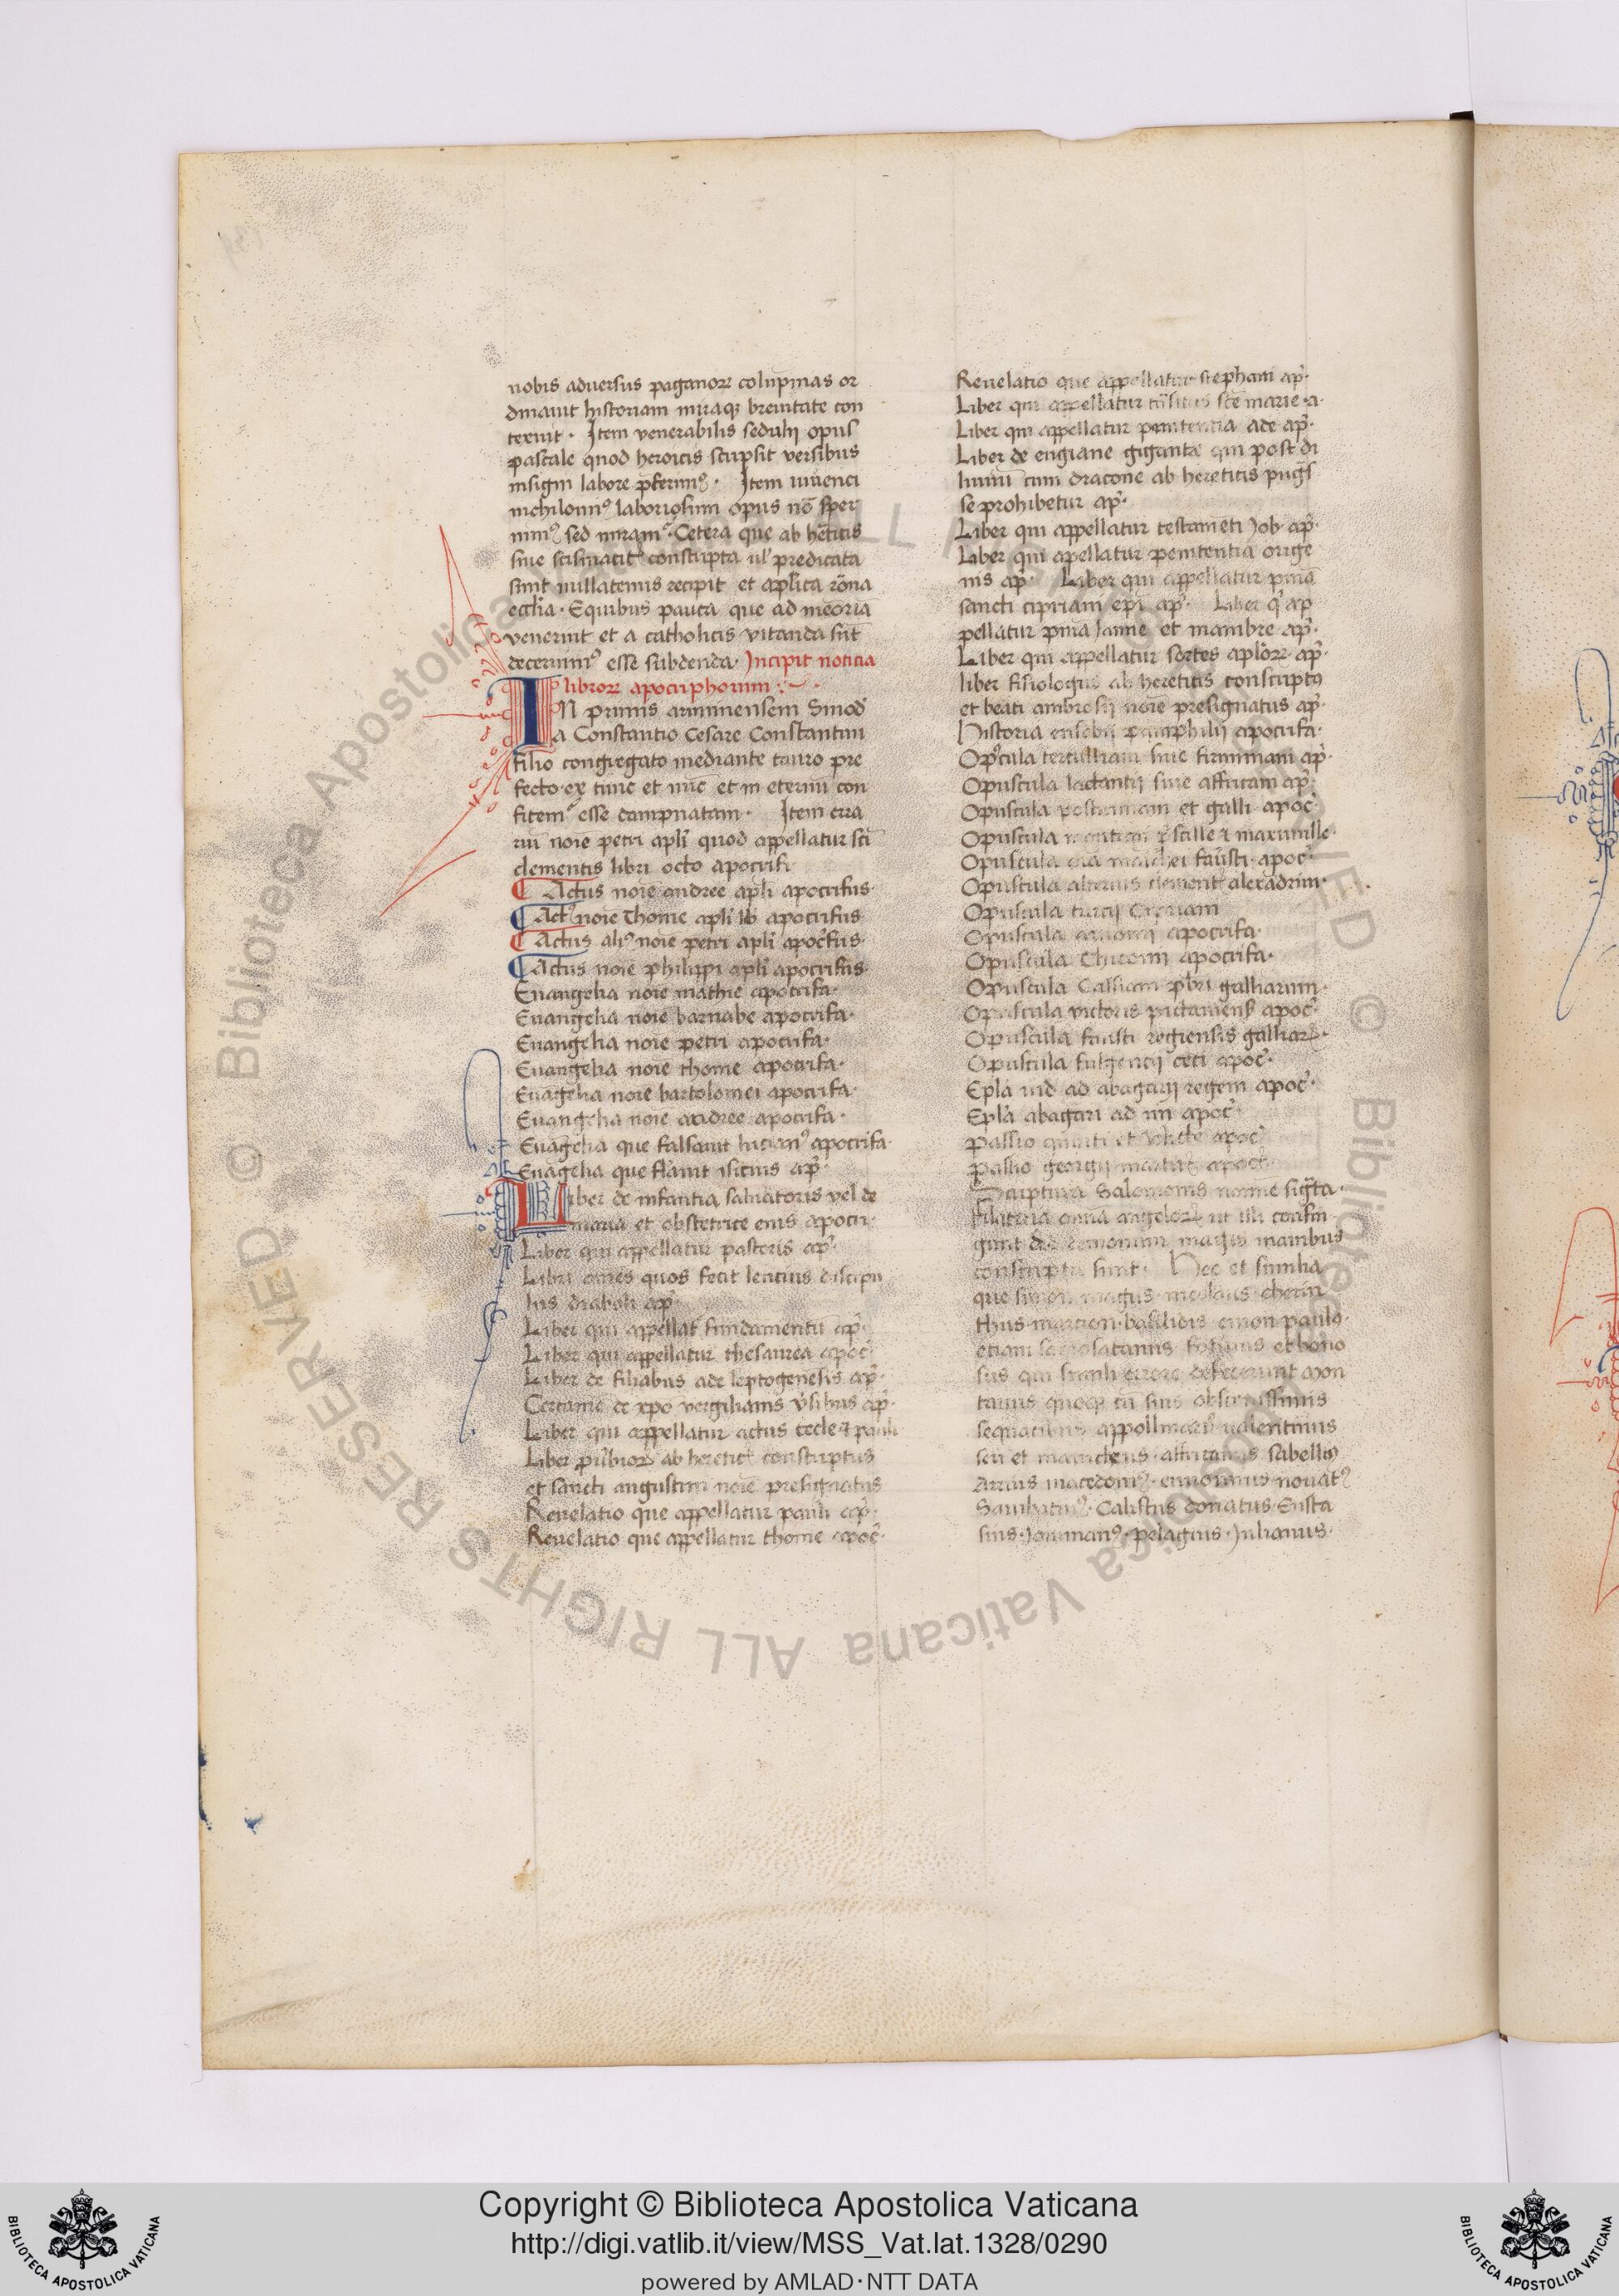 nobis aduersus paganoꝝ colūpnias or
dinauit historiam miraqꝫ breuitate con
texuit · Item venerabilis sedulij opus
pascale quod heroicis scripsit versibus
insigni labore p̄ferimꝰ · Item iuuenci
nichilominꝰ laboriosum opus nō sper
nimꝰ sed miramꝰ · Cetera que ab hēticis
siue scismaticꝭ conscripta ul̓ predicata
sunt nullatenus recipit et aplica rōna
ecclīa · Equibus pauca que ad meōria
venerint et a catholicis vitanda sūt
decernimꝰ esse subdenda · Incipit noticia
libroꝝ apocriphorum
IN primis ariminensem Sinod̓
a Constantio Cesare Constantini
filio congregato mediante tauro pre
fecto · ex tunc et nūc et in eternū con
fitemꝰ esse dampnatam · Item erra
riū noīe petri apl̓i quod appellatur sc̄i
clementis libri octo apocrifi
Actus noīe andree apl̓i apocrifus ·
Actꝰ noīe Thome apl̓i apocrifus ·
Actus aliꝰ noīe petri apl̓i apoc̓fus ·
Actus noīe philippi apl̓i apocrifus ·
Euangelia noīe mathie apocrifa ·
Euangelia noīe barnabe apocrifa ·
Euangelia noīe petri apocrifa ·
Euangelia noīe thome apocrifa ·
Euāgelia noīe bartolomei apocrifa ·
Euangelia noīe andree apocrifa ·
Euāgelia que falsauit lucianꝰ apocrifa ·
Euāgelia que flauit isicius ap̓ ·
Liber de infantia saluatoris vel de
maria et obstetrice eius apocri ·
Liber qui appellatur pastoris ap̓ ·
Libri om̄es quos fecit leucius discipu
lus diaboli ap̓ ·
Liber qui appellat̓ fundamentū ap̓ ·
Liber qui appellatur thesaurea apoc̓
Liber de filiabus ade leptogenesis ap̓ ·
Certamē de xp̄o vergilianis v̓sibus ap̓ ·
Liber qui appellatur actus tecle ⁊ pauli
Liber pu̓bioꝝ ab hereticꝭ conscriptus
et sancti augustini noīe presignatus
Reuelatio que appellatur pauli ap̓ ·
Reuelatio que appellatur thome apoc̓ ·
Reuelatio que appellatur stephani ap̓ ·
Liber qui appellatur trāsitus scē marie · a ·
Liber qui appellatur penitentia ade ap̓ ·
Liber de engiane gigante qui post di
luuiū cum dracone ab hereticis pugs
se prohibetur ap̓ ·
Liber qui appellatur testamēti Job · ap̓ ·
Liber qui apellatur penitentia orige
nis ap̓ · Liber qui appellatur pniā
sancti cipriani epī ap̓ · Liber q̓ ap
pellatur pnia Janne et mambre ap̓ ·
Liber qui appellatur sortes aplōꝝ ap̓ ·
liber fisiologus ab hereticis conscriptꝰ
et beati ambrosij noīe presignatus ap̓ ·
Historia eusebij pamphilij apocrifa ·
Opꝰcula tertulliani siue firminiani ap̓ ·
Opuscula lactantij siue affricani ap̓ ·
Opuscula postumiani et galli apoc̓ ·
Opuscula montani p̓scille ⁊ maximille ·
Opuscula oīa manichei fausti · apoc̓ ·
Opuscula alterius clementꝭ alexādrini ·
Opuscula turcij Cipriani
Opuscula arnobij apocrifa ·
Opuscula Thiconij apocrifa ·
Opuscula Cassiani p̄bri galliarum ·
Opuscula victoris pictauiensꝭ apoc̓ ·
Opuscula fausti regiensis galliaꝝ ·
Opuscula fulgencij ceci apoc̓ ·
Epl̓a iūd ad abagarij regem apoc̓ ·
Epl̓a abagari ad iūi apoc̓ ·
Passio quirici et Julicte apoc̓
Passio georgij martiris apoc̓ ·
Scriptura Salomonis nomine sig̓ta ·
filateria omnia angeloꝝ ut illi confin
gunt sed demonum magis manibus
conscripta sunt · Hec et similia
que simon magus · nicolaus · cherin
thus · marcion · basilides ebion · paulꝰ
etiam samosatanus fotinus et bono
sus qui simili errore defecerunt mon
tanus quoqꝫ cū suis obscenissimis
sequacibus appollinarꝭ ualentinus
seu et manicheus · affricanus sabelliꝰ
Arrius macedoniꝰ · eunomius nouatꝰ
Sambatiꝰ · Calistus donatus · Eusta
sius · Jouinianꝰ · pelagius · Julianus ·
© Biblioteca Apostolica Vaticana ALL RIGHTS RESERVED
Copyright © Biblioteca Apostolica Vaticana
http://digi.vatlib.it/view/MSS_Vat.lat.1328/0290
powered by AMLAD · NTT DATA
BIBLIOTECA APOSTOLICA VATICANA
BIBLIOTECA APOSTOLICA VATICANA